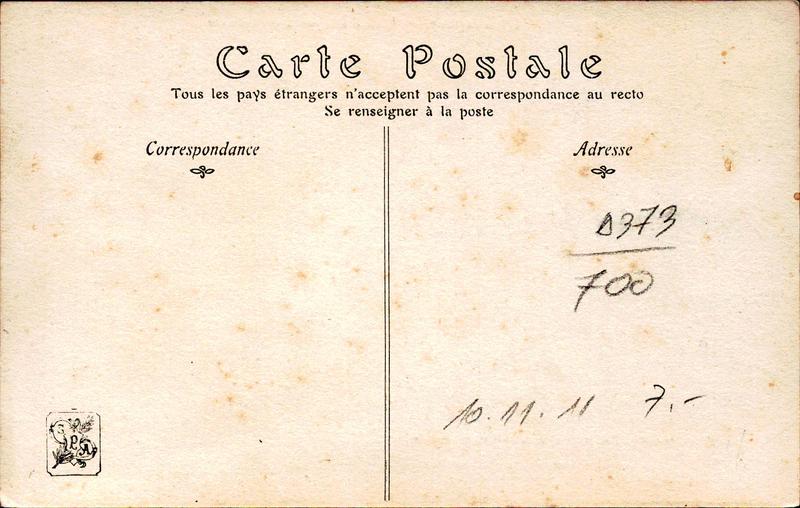 Carte Postale
Tous les pays étrangers n'acceptent pas la correspondance au recto
Se renseigner à la poste
Correspondance
Adresse
D373
700
10.11.11 7.-